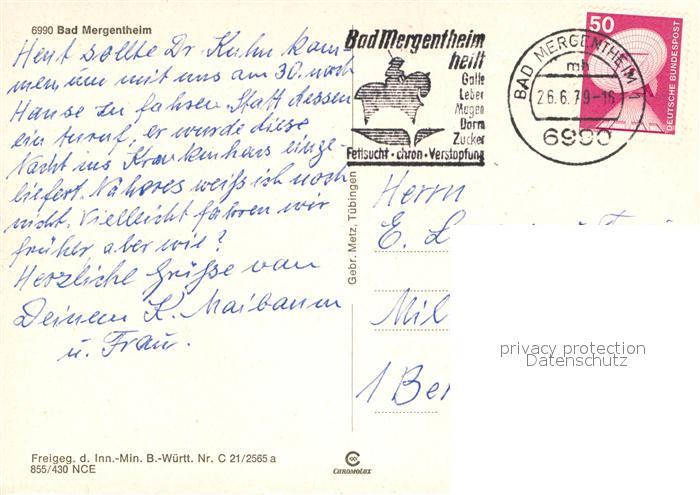 6990 Bad Mergentheim
Heut sollte Dr. Kuhn kom-
men, um mit uns am 30. nach
Hause zu fahren. Statt dessen
ein Anruf, er wurde diese
Nacht ins Krankenhaus einge-
liefert. Näheres weiß ich noch
nicht. Vielleicht fahren wir
früher, aber wie?
Herzliche Grüße von
Deinem K. Maibaum
u. Frau.
Freigeg. d. Inn.-Min. B.-Württ. Nr. C 21/2565 a
855/430 NCE
Gebr. Metz, Tübingen
CHROMOLUX
Bad Mergentheim
heilt
Galle
Leber
Magen
Darm
Zucker
Fettsucht · chron · Verstopfung
BAD MERGENTHEIM 1
mb
26.6.79-16
6990
50
DEUTSCHE BUNDESPOST
Herrn
E. L
Mil
1 Ber
privacy protection
Datenschutz